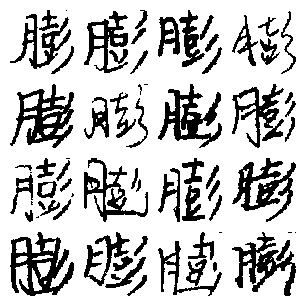 膨膨膨膨
膨膨膨膨
膨膨膨膨
膨膨膨膨